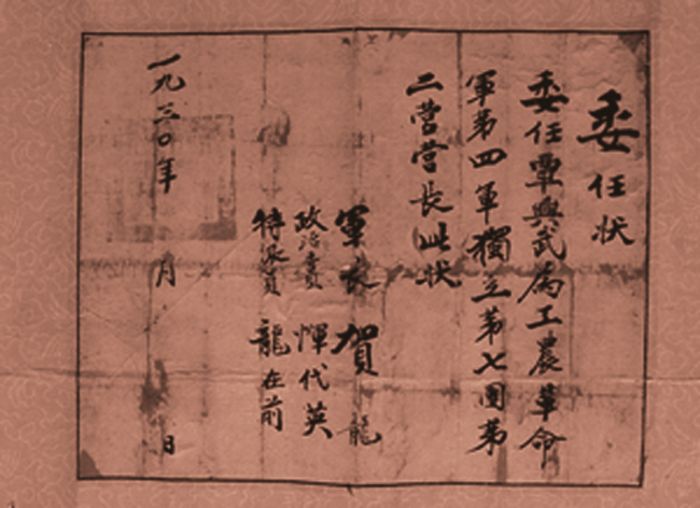 委任状
委任覃興武為工農革命
軍第四軍獨立第七團第
二营营长此状
軍长 賀龍
政治委員 惲代英
特派員 龍在前
一九三〇年 月 日